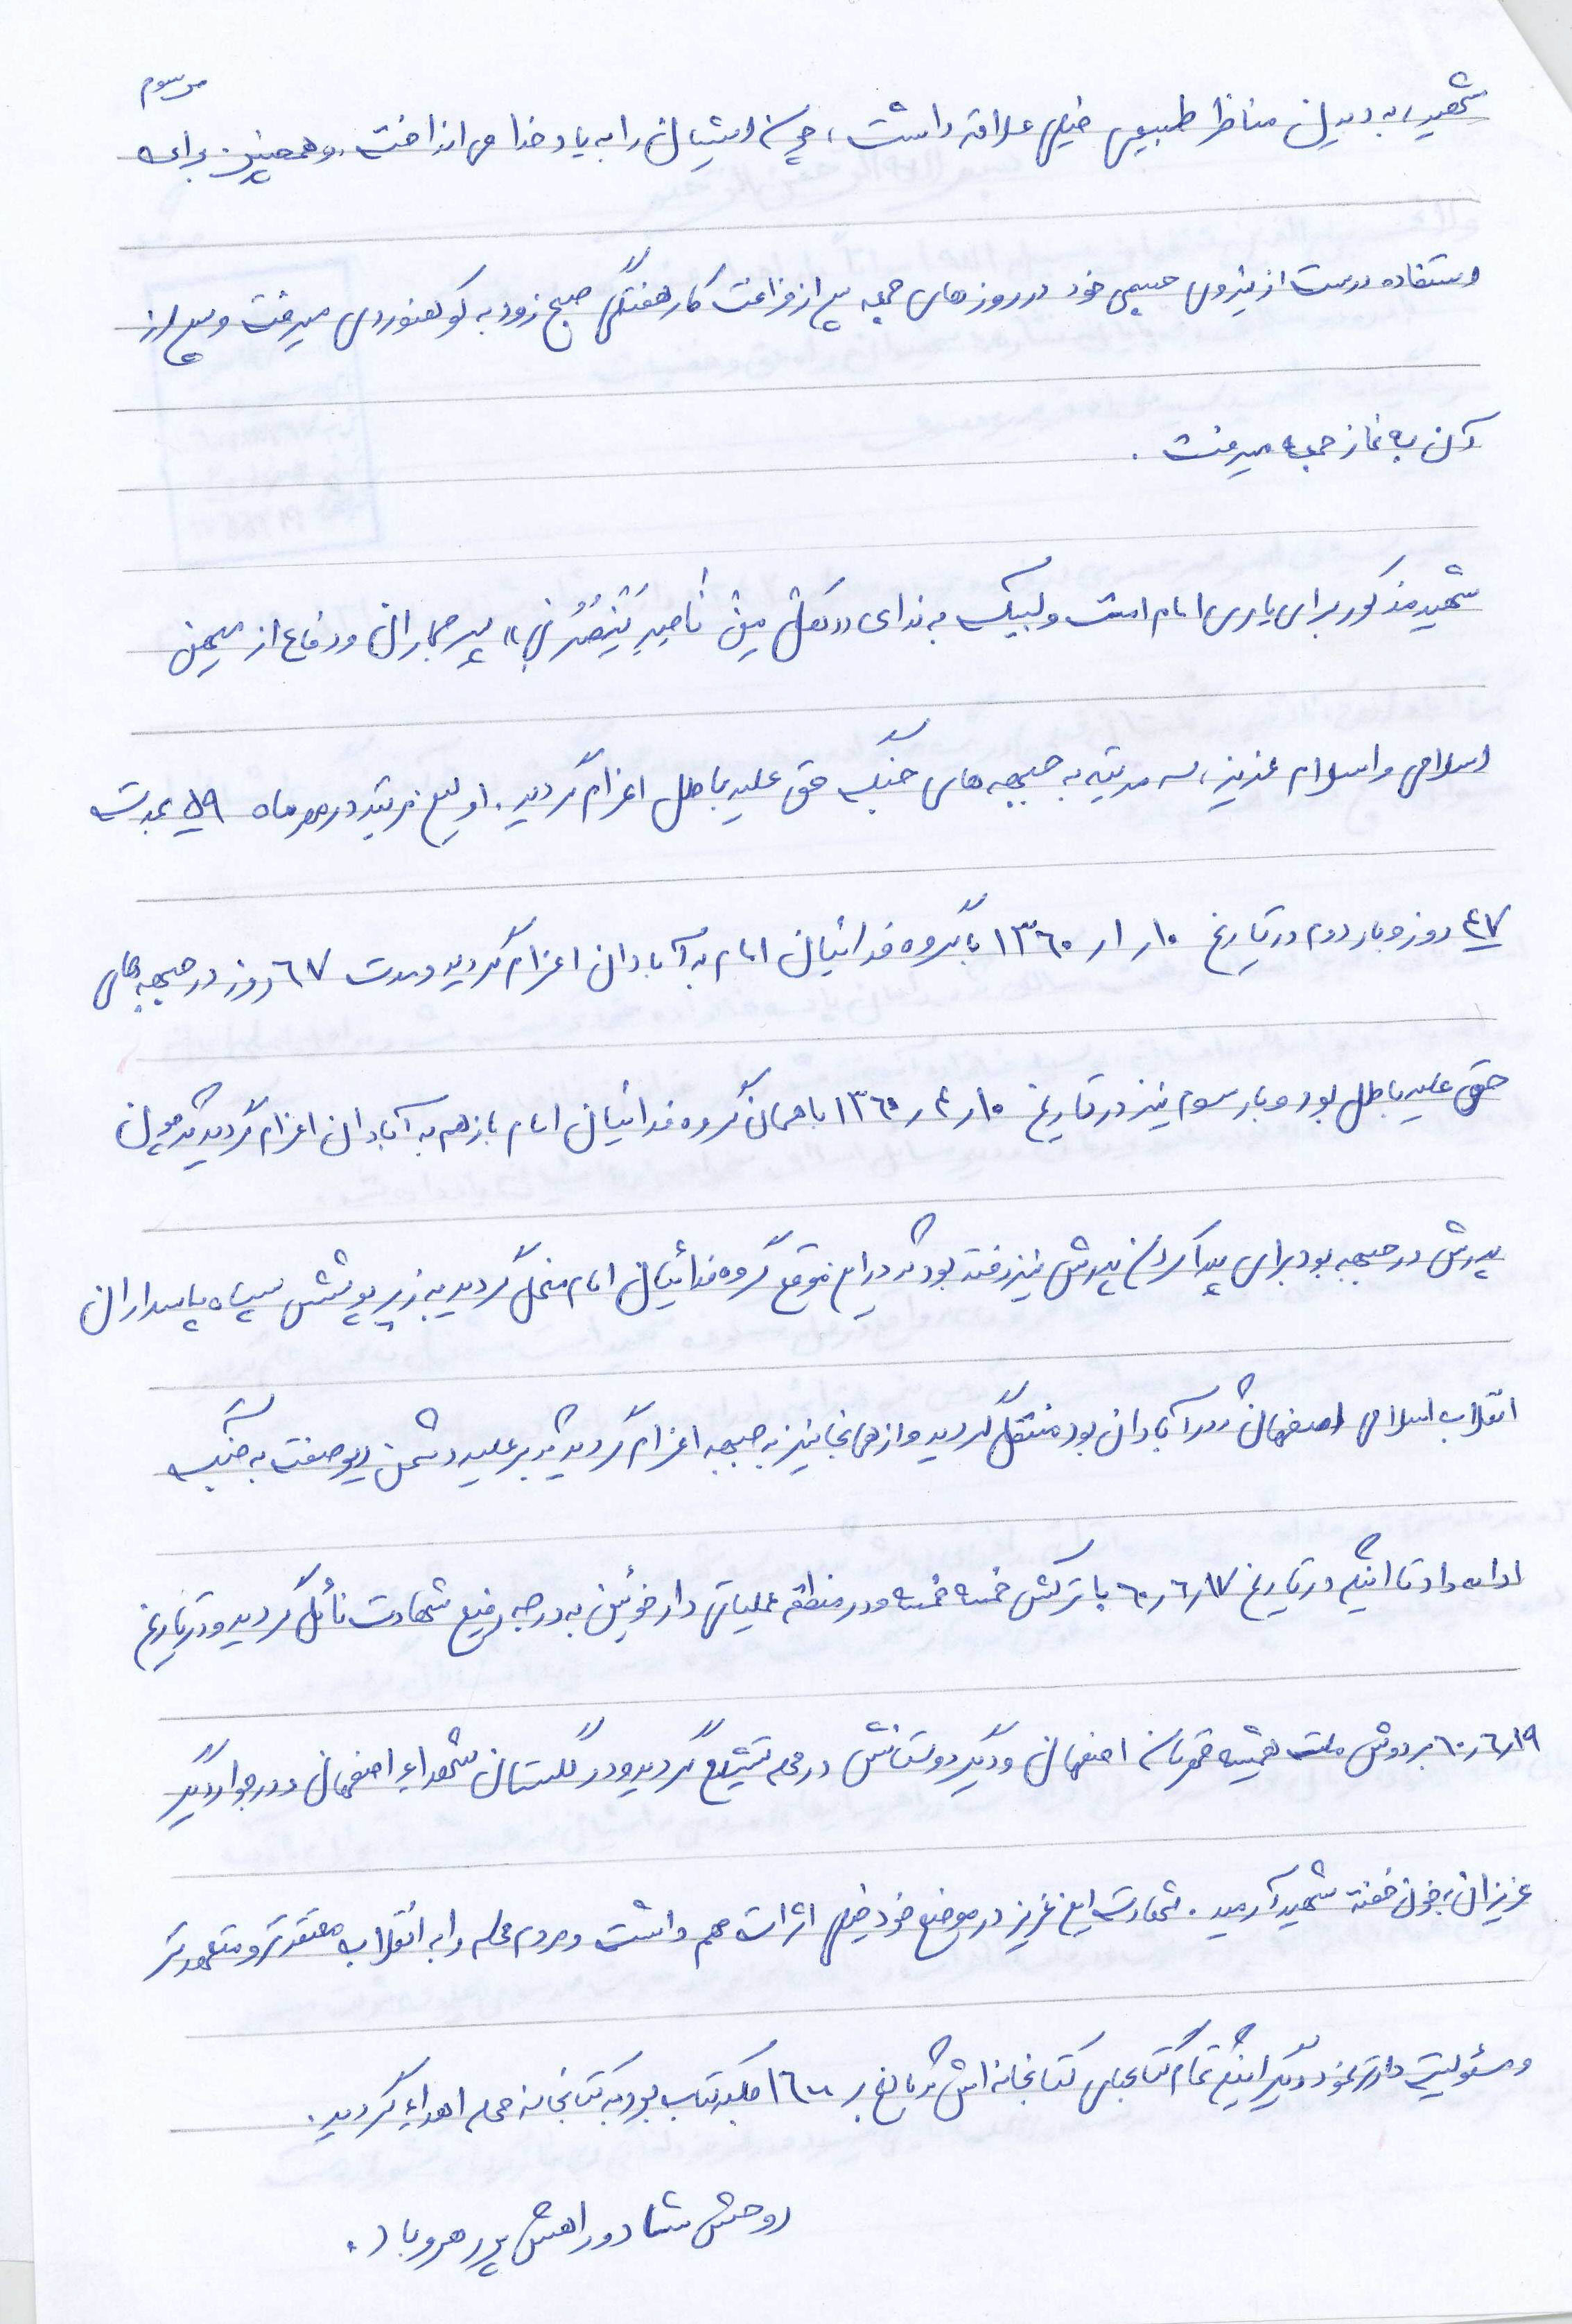 مرسوم
شهید، به دیدن مناظر طبیعی خیلی علاقه داشت، چون ایشان را به یاد خدا می انداخت. و همچنین برای
استفاده درست از نیروی جسمی خود در روزهای جمعه پس از فراغت کار هفتگی صبح زود به کوهنوردی میرفت و پس از
آن به نماز جمعه میرفت.
شهید مذکور برای یاری امام امت و لبیک به ندای «هَل مِن ناصِرٍ یَنصُرُنی» پیر جماران و دفاع از میهن
اسلامی و اسلام عزیز، سه مرتبه به جبهه های جنگ حق علیه باطل اعزام گردید. اولین مرتبه در مهر ماه ۵۹ بمدت
۴۷ روز و بار دوم در تاریخ ۱۰ر۱ر۱۳۶۰ با گروه فدائیان امام به آبادان اعزام گردید و مدت ۶۷ روز در جبهه های
حق علیه باطل بود و بار سوم نیز در تاریخ ۱۰ر۴ر۱۳۶۰ با همان گروه فدائیان امام باز هم به آبادان اعزام گردید که چون
پدرش در جبهه بود برای پیدا کردن پدرش نیز رفته بود که در این موقع گروه فدائیان امام منحل گردید به زیر پوشش سپاه پاسداران
انقلاب اسلامی اصفهان که در آبادان بود منتقل گردید و از همانجا نیز به جبهه اعزام گردید که بر علیه دشمن دیو صفت به جنگ
ادامه داد تا اینکه در تاریخ ۱۷ر۶ر۶۰ با ترکش خمسه خمسه در منطقه عملیاتی دارخوئین به درجه رفیع شهادت نائل گردید و در تاریخ
۱۹ر۶ر۶۰ بر دوش ملت همیشه قهرمان اصفهان و دیگر دوستانش در محله تشییع گردید و در گلستان شهداء اصفهان و در جوار دیگر
عزیزان بخون خفته شهید آرمید. شهادت این عزیز در موضع خود خیلی اثرات مهم داشت و مردم محله را به انقلاب معتقدتر و متعهدتر
و مسئولیت دارتر نمود و دیگر اینکه تمام کتابهای کتابخانه اش که بالغ بر ۱۶۰۰ جلد کتاب بود به کتابخانه محله اهداء گردید.
روحش شاد و راهش پر رهرو باد.